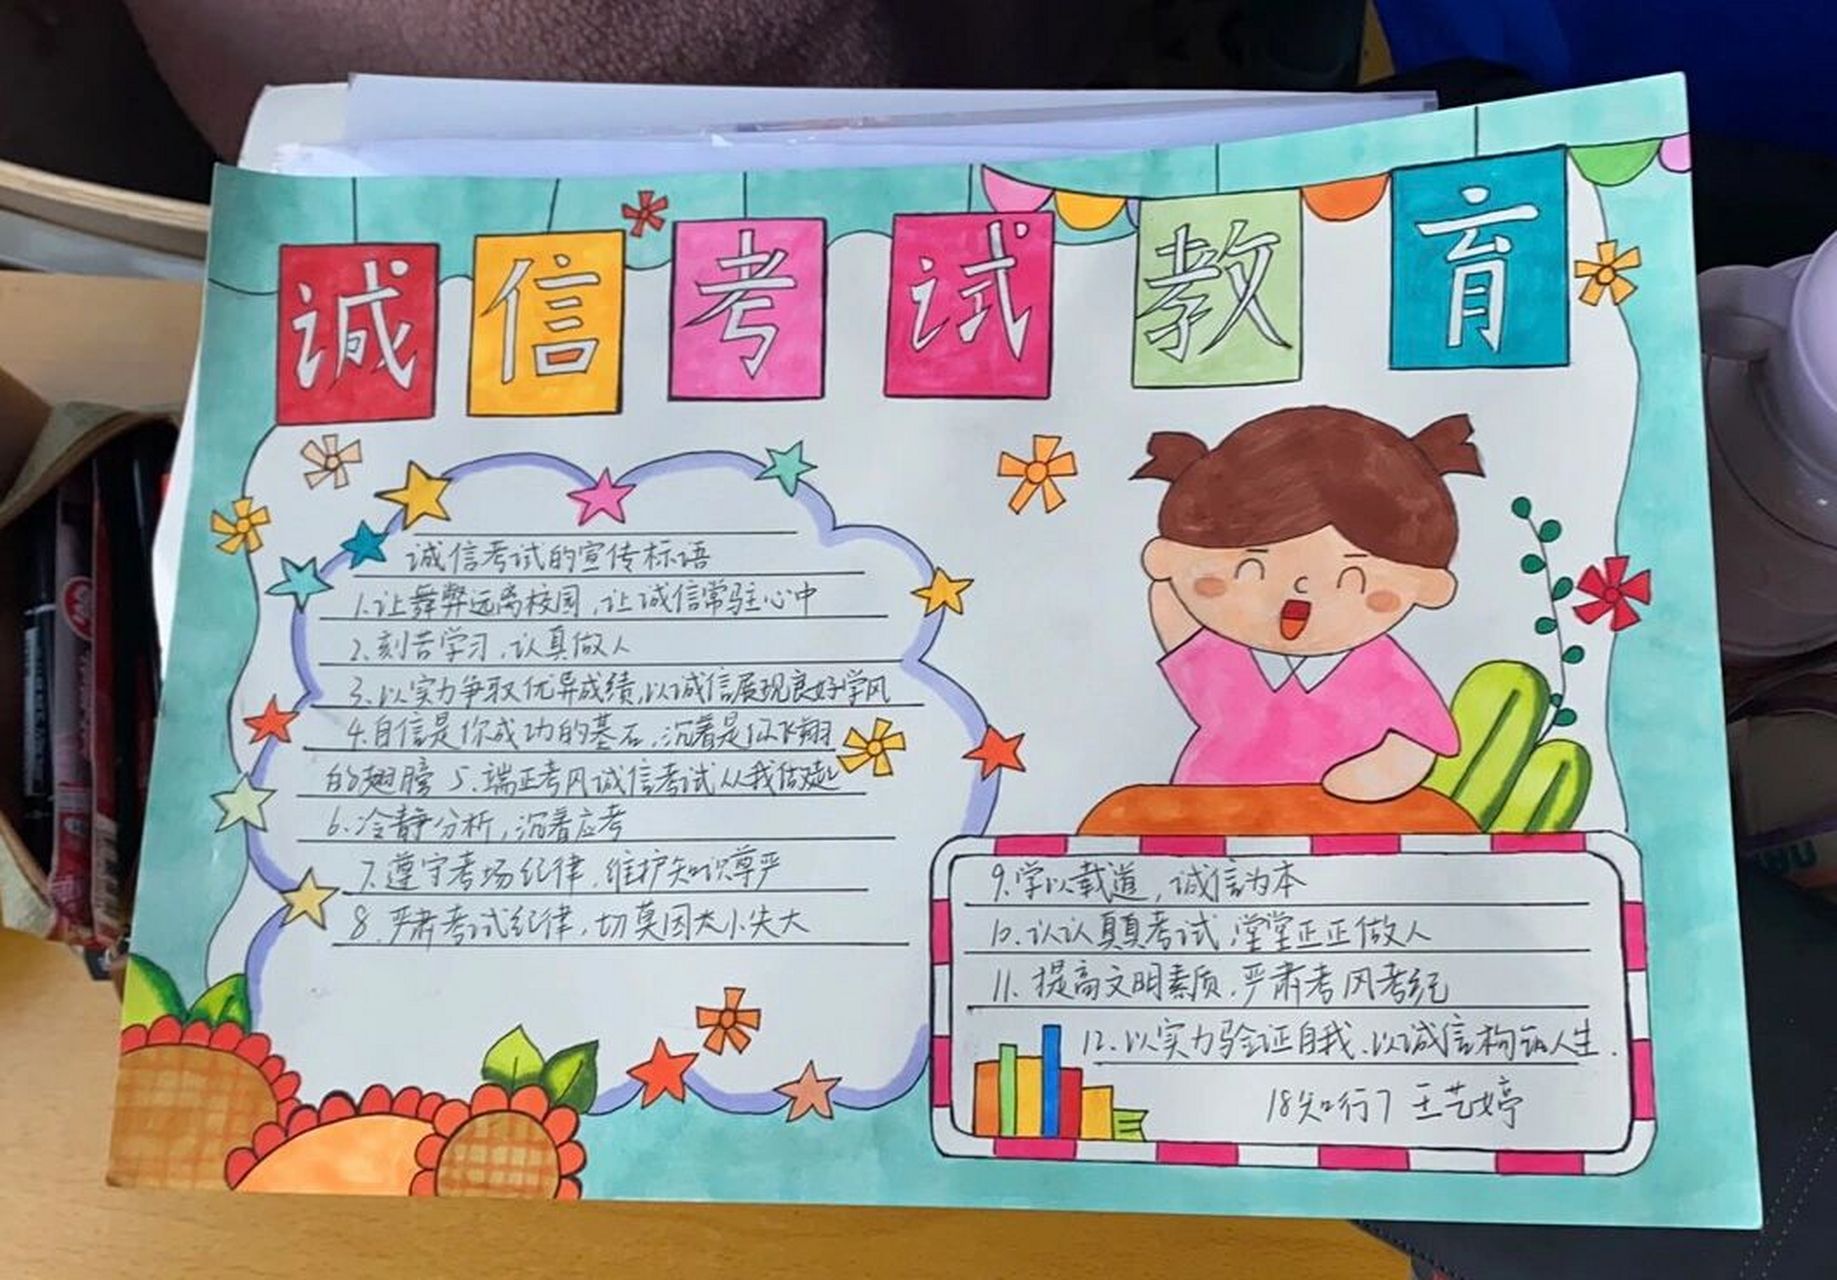 诚信考试教育
诚信考试的宣传标语
1、让舞弊远离校园，让诚信常驻心中
2、刻苦学习，认真做人
3、以实力争取优异成绩，以诚信展现良好学风
4、自信是你成功的基石，沉着是你飞翔
的翅膀 5、端正考风诚信考试从我做起
6、冷静分析，沉着应考
7、遵守考场纪律，维护知识尊严
8、严肃考试纪律，切莫因太小失大
9、学以载道，诚信为本
10、认认真真考试，堂堂正正做人
11、提高文明素质，严肃考风考纪
12、以实力验证自我，以诚信构筑人生.
18知行7 王艺婷